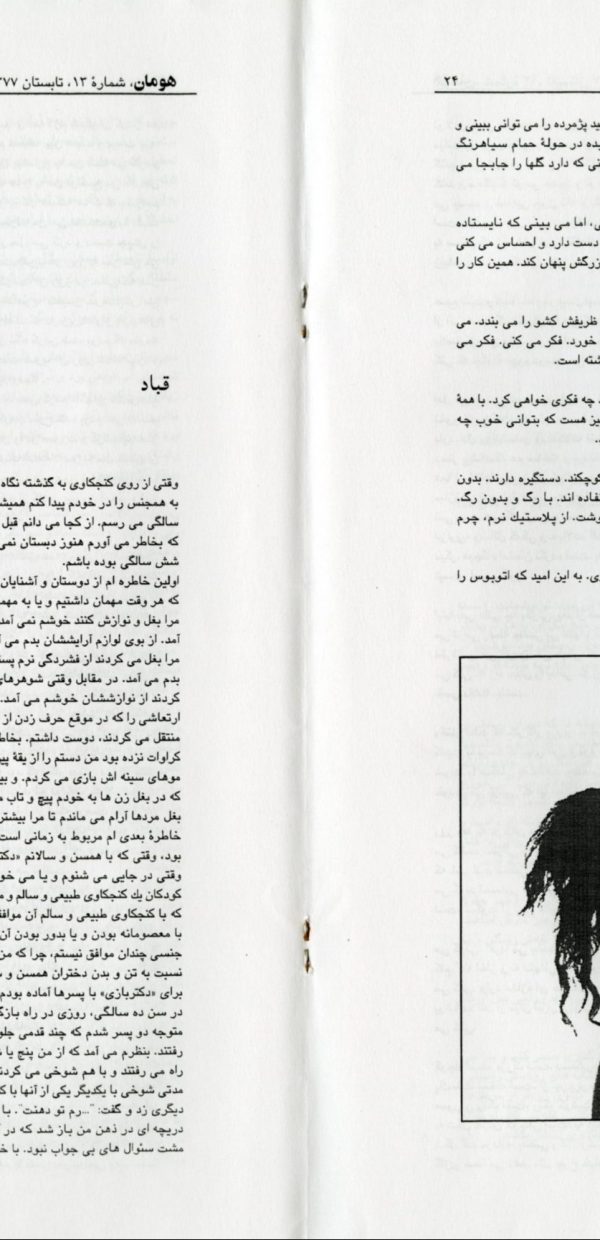 ۲۴
ید پژمرده را می توانی ببینی و
یده در حولهٔ حمام سیاهرنگ
نی که دارد گلها را جابجا می
ی، اما می بینی که نایستاده
دست دارد و احساس می کنی
زرگش پنهان کند. همین کار را
ظریفش کشو را می بندد. می
خورد. فکر می کنی. فکر می
شته است.
چه فکری خواهی کرد. با همهٔ
یز هست که بتوانی خوب چه
کوچکند. دستگیره دارند. بدون
فاده اند. با رگ و بدون رگ.
وشت. از پلاستیك نرم، چرم
ی. به این امید که اتوبوس را
هومان، شمارهٔ ۱۳، تابستان ۷۷
قباد
وقتی از روی کنجکاوی به گذشته نگاه
به همجنس را در خودم پیدا کنم همیشه
سالگی می رسم. از کجا می دانم قبل
که بخاطر می آورم هنوز دبستان نمی
شش سالگی بوده باشم.
اولین خاطره ام از دوستان و آشنایان
که هر وقت مهمان داشتیم و یا به مهم
مرا بغل و نوازش کنند خوشم نمی آمد
آمد. از بوی لوازم آرایششان بدم می آ
مرا بغل می کردند از فشردگی نرم پس
بدم می آمد. در مقابل وقتی شوهرهای
کردند از نوازششان خوشم می آمد.
ارتعاشی را که در موقع حرف زدن از
منتقل می کردند، دوست داشتم. بخاط
کراوات نزده بود من دستم را از یقهٔ پی
موهای سینه اش بازی می کردم. و بی
که در بغل زن ها به خودم پیچ و تاب م
بغل مردها آرام می ماندم تا مرا بیشتر
خاطرهٔ بعدی ام مربوط به زمانی است
بود، وقتی که با همسن و سالانم «دکتر
وقتی در جایی می شنوم و یا می خو
کودکان یك کنجکاوی طبیعی و سالم و م
که با کنجکاوی طبیعی و سالم آن موافق
با معصومانه بودن و یا بدور بودن آن
جنسی چندان موافق نیستم، چرا که من
نسبت به تن و بدن دختران همسن و س
برای «دکتربازی» با پسرها آماده بودم
در سن ده سالگی، روزی در راه بازگ
متوجه دو پسر شدم که چند قدمی جلو
رفتند. بنظرم می آمد که از من پنج یا
راه می رفتند و با هم شوخی می کردند
مدتی شوخی با یکدیگر یکی از آنها با ک
دیگری زد و گفت: "...رم تو دهنت". با
دریچه ای در ذهن من باز شد که در آ
مشت سئوال های بی جواب نبود. با خ